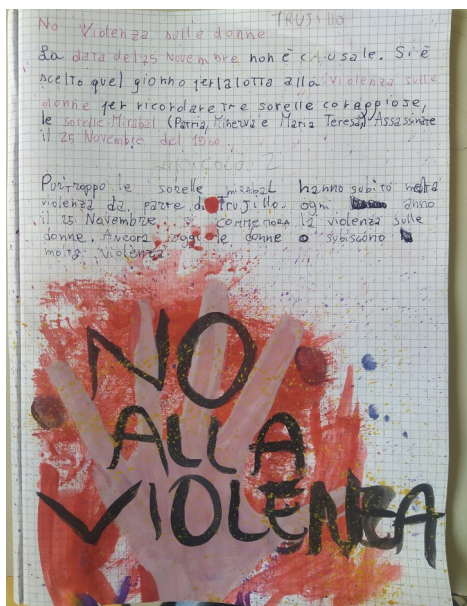 TRUJILLO
No Violenza sulle donne
La data del 25 Novembre non è cAusale. Si è
scelto quel giorno per la lotta alla violenza sulle
donne per ricordare tre sorelle coraggiose,
le sorelle Mirabal (Patria, Minerva e Maria Teresa) Assassinate
il 25 Novembre del 1960
Purtroppo le sorelle mirabal hanno subito
violenza da parte di trujillo. ogni anno
il 25 Novembre si commemora la violenza sulle
donne. Ancora oggi le donne subiscono
molta violenza
NO
ALLA
VIOLENZA